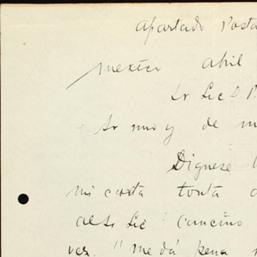 Apartado Posta
Mexico Abril
Sr Lic D P
Sr muy de m
Dignese
mi carta tonta
al Sr Lic Cancino
vez. "me dá pena